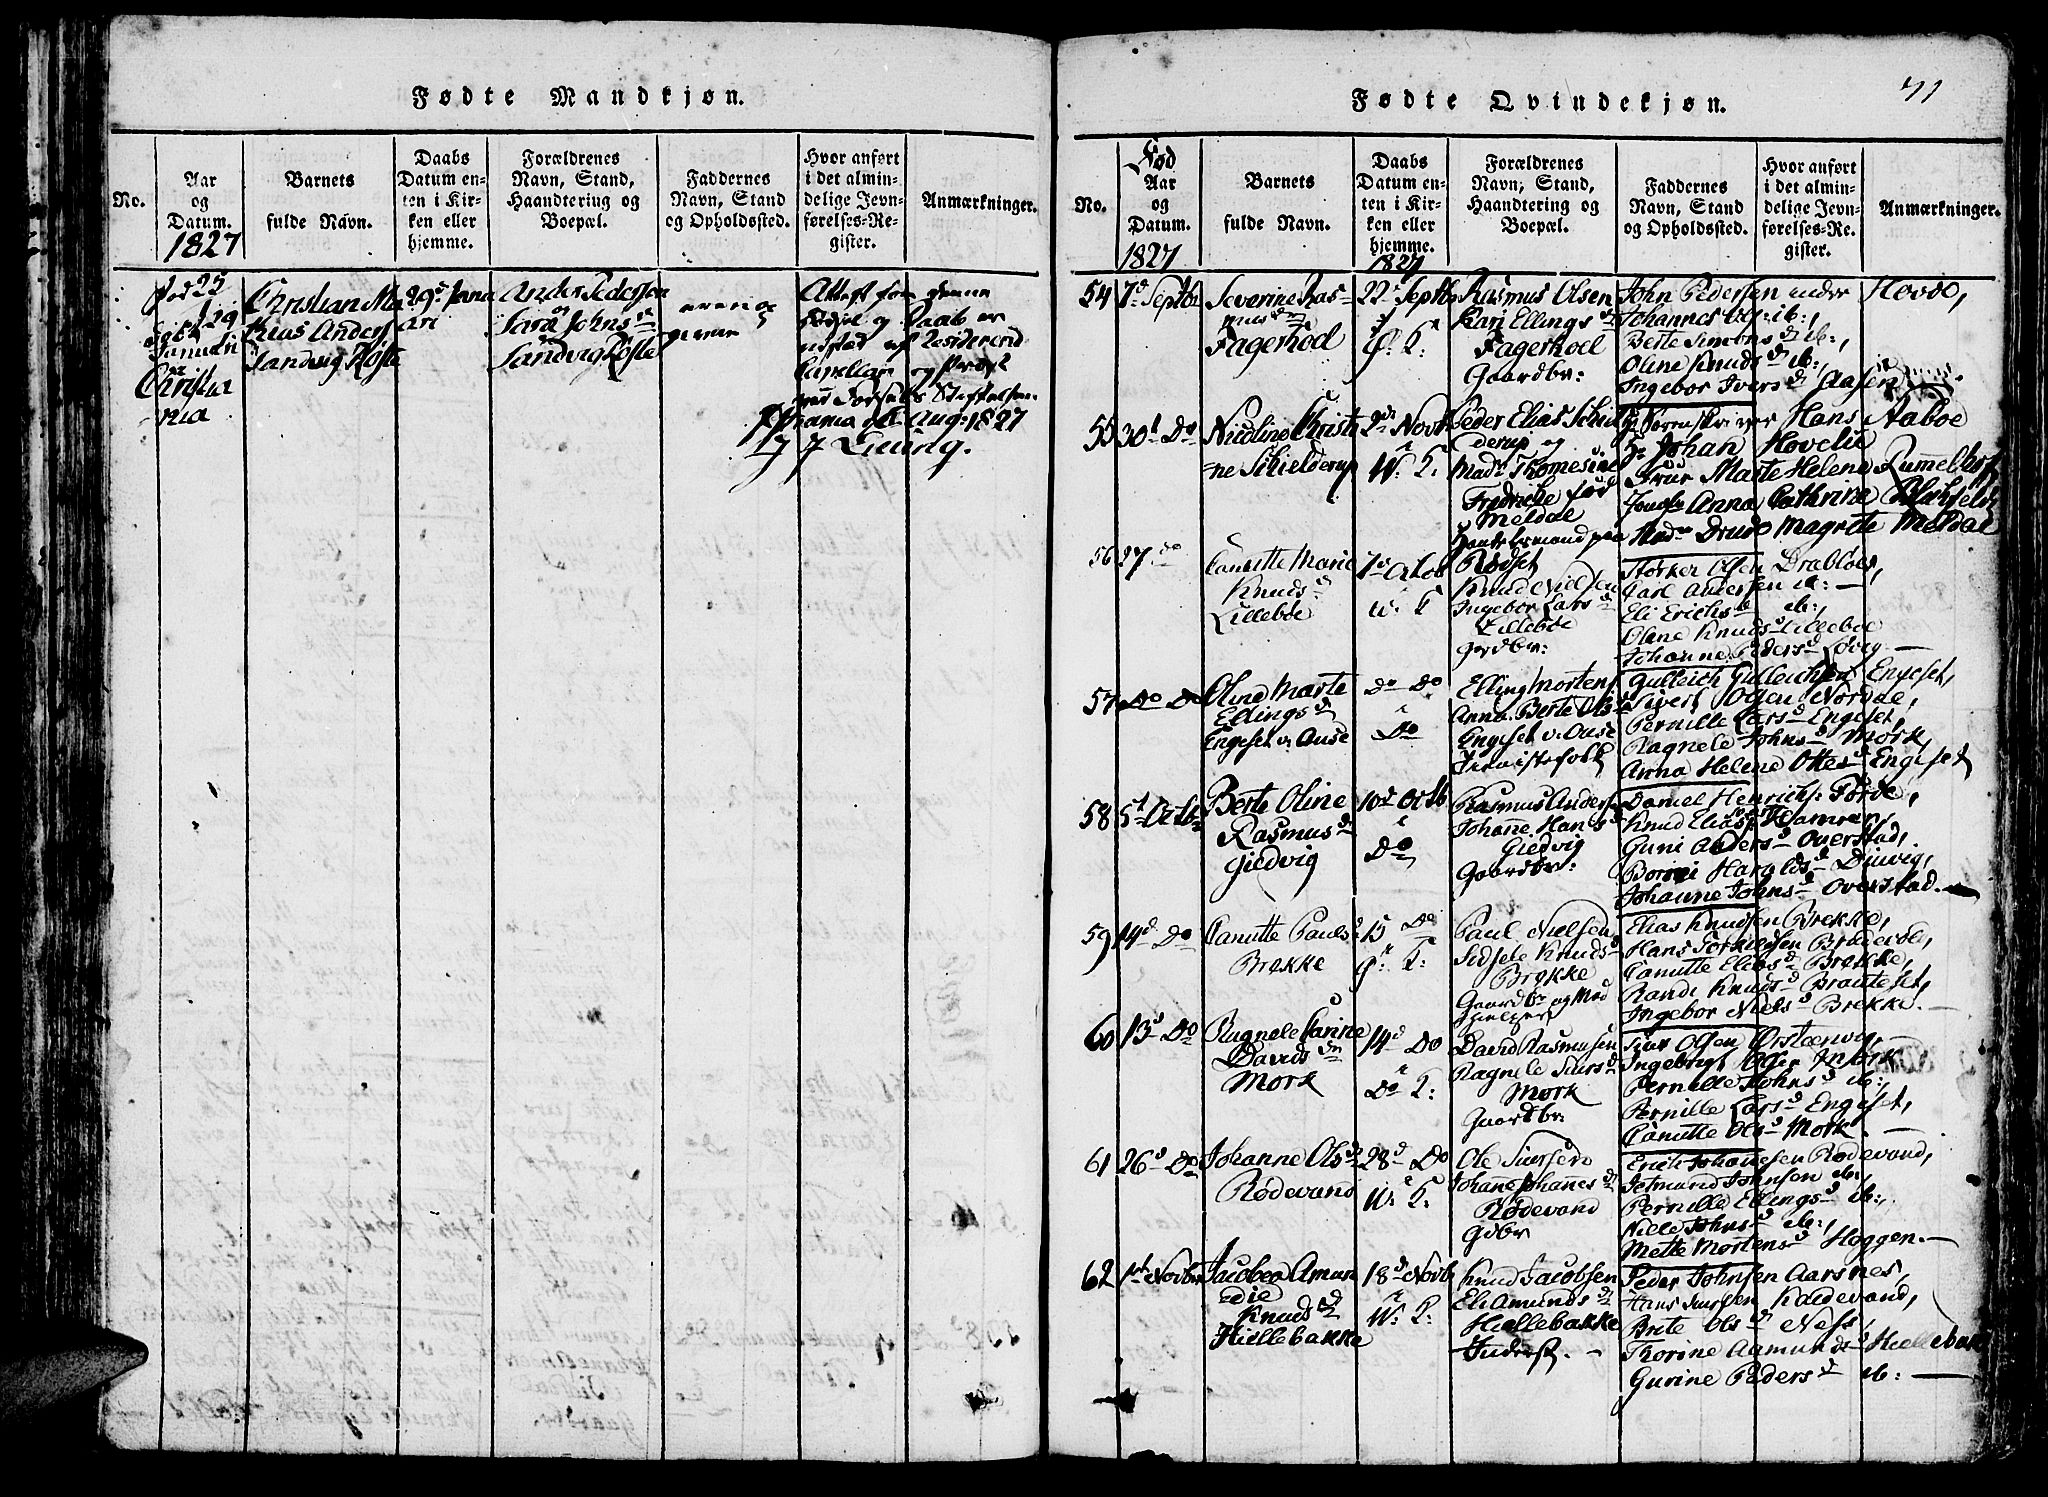 Fødte Mandkjøn.
No.
Aar
og
Datum.
1827
Barnets
fulde Navn.
Daabs
Datum en-
ten i Kir-
ken eller
hjemme.
Forældrenes
Navn, Stand,
Haandtering og
Boepæl.
Faddernes
Navn, Stand
og Opholdssted.
Hvor anført
i det almin-
delige Jevn-
førelses-Re-
gister.
Anmærkninger.
Christian Ma
thias Anders
Sandvig Røste
29de Janu
ari
Anders Pedersen
og
Sara Johnsd
Sandvig Røste
Attest for denne
Fødsel og Daab er
udstæd af Residerend
Capellan og Præst
Aug: 1827
J J Lunng.
Christia
nia
Fødte Qvindekjøn.
71
No.
Fød
Aar
og
Datum.
1827
Barnets
fulde Navn.
Daabs
Datum en-
ten i Kir-
ken eller
hjemme.
1827
Forældrenes
Navn, Stand,
Haandtering og
Boepæl.
Faddernes
Navn, Stand
og Opholdssted.
Hvor anført
i det almin-
delige Jevn-
førelses-Re-
gister.
Anmærkninger.
54 7de Septbr
Severine Ras-
musdr
Fagerhoel
22de Septbr
Ø: K:
Rasmus Olsen
Kari Ellingsd
Fagerhoel
Gaardbr:
John Pedersen under Hovde,
Johannes Ols: ib:,
Berte Simonsd ib:,
Oline Knudsd ib:,
Ingebor Iversd Aasen
55 30t Do
Nicoline Christi
ne Schielderup
2den Novbr
W: K:
Peder Elias Schiel
derup og
Madm Thomesine
Fredrikke fød
Meldal
Rødset
Hr Sorenskriver Hans Aaboe
Hr Johan Hovelie
Frue Marte Helene Rummelhoff
Jomfr Anna Cathrine
Madm Drude Magrete Meldal
56 27 do
Canutte Marie
Knudsd
Lilleboe
7de Octob
W: K
Knud Nielsen
Ingebor Larsd
Lilleboe
Gardbr:
Størker Olsen Drabløes,
Carl Andersen ib: —
Eli Erichsd ib:,
Oline Knudsd Lilleboe
Johanne Pedersd Løvig —
57 Do Do
Oline Marte
Ellingsd
Engeset v: Ouse
Do Do
Do
Elling Mortens
Anna Berte Olsd
Engeset v: Ouse
Gulleich Gulleichsen Engeset,
Sivert Olsen Nordal,
Pernille Larsd Engeset,
Ragnele Johnsd Mork,
Anna Helene Ottesd Engeset
58 5t Octb
Berte Oline
Rasmusd
Giedvig
10de Octb
Do
Rasmus Anders
Johanne Hansd
Giedvig
Gaardbr:
Daniel Henrichs: Førde,
Knud Elias: Hamre,
Guni Andersd Overstad,
Borni Haraldsd Digvig,
Johanne Johnsd Overstad. —
59 14d Do
Canutte Paulsd
Brekke
15 Do
Ø: K:
Paul Nielsen
Sidsele Knudsd
Brekke
Gaardbr og Med
hielper
Elias Knudsen Brekke,
Hans Torkildsen Brudevol,
Canutte Eliasd Brekke,
Randi Knudsd Brauteset,
Ingebor Nielsd Brekke. —
60 13d Do
Ragnele Carine
Davidsdr
Mork
14d Do
Do K:
David Rasmusen
Ragnele Siursd
Mork
Gaardbr
Siur Olsen Ørstenvig, —
Ingebrigt Olsen Mork
Pernille Johnsd ib:,
Pernille Larsd Engeset,
Canutte Olsd Mork. —
61 26d Do
Johanne Olsd
Rødevand
28d Do
W: K:
Ole Siursen
Johanne Johannesd
Rødevand
Gdbr
Erich Johannesen Rødevand,
Jetmund Johnsen ib:
Pernille Ellingsd ib:,
Nille Johnsd ib:,
Mette Mortensd Hoggen. —
62 1st Novbr
Jacobea Amun
die
Knudsd
Hiellebakke
18d Novb
W: K:
Knud Jacobsen
Eli Amundsd
Hiellebakke
Inderst. —
Peder Johnsen Aarsnes,
Hans Siursen Kaldevand,
Brite Olsd Ness,
Thorine Aamundsd Hiellebakke
Gurine Pedersd ib: —